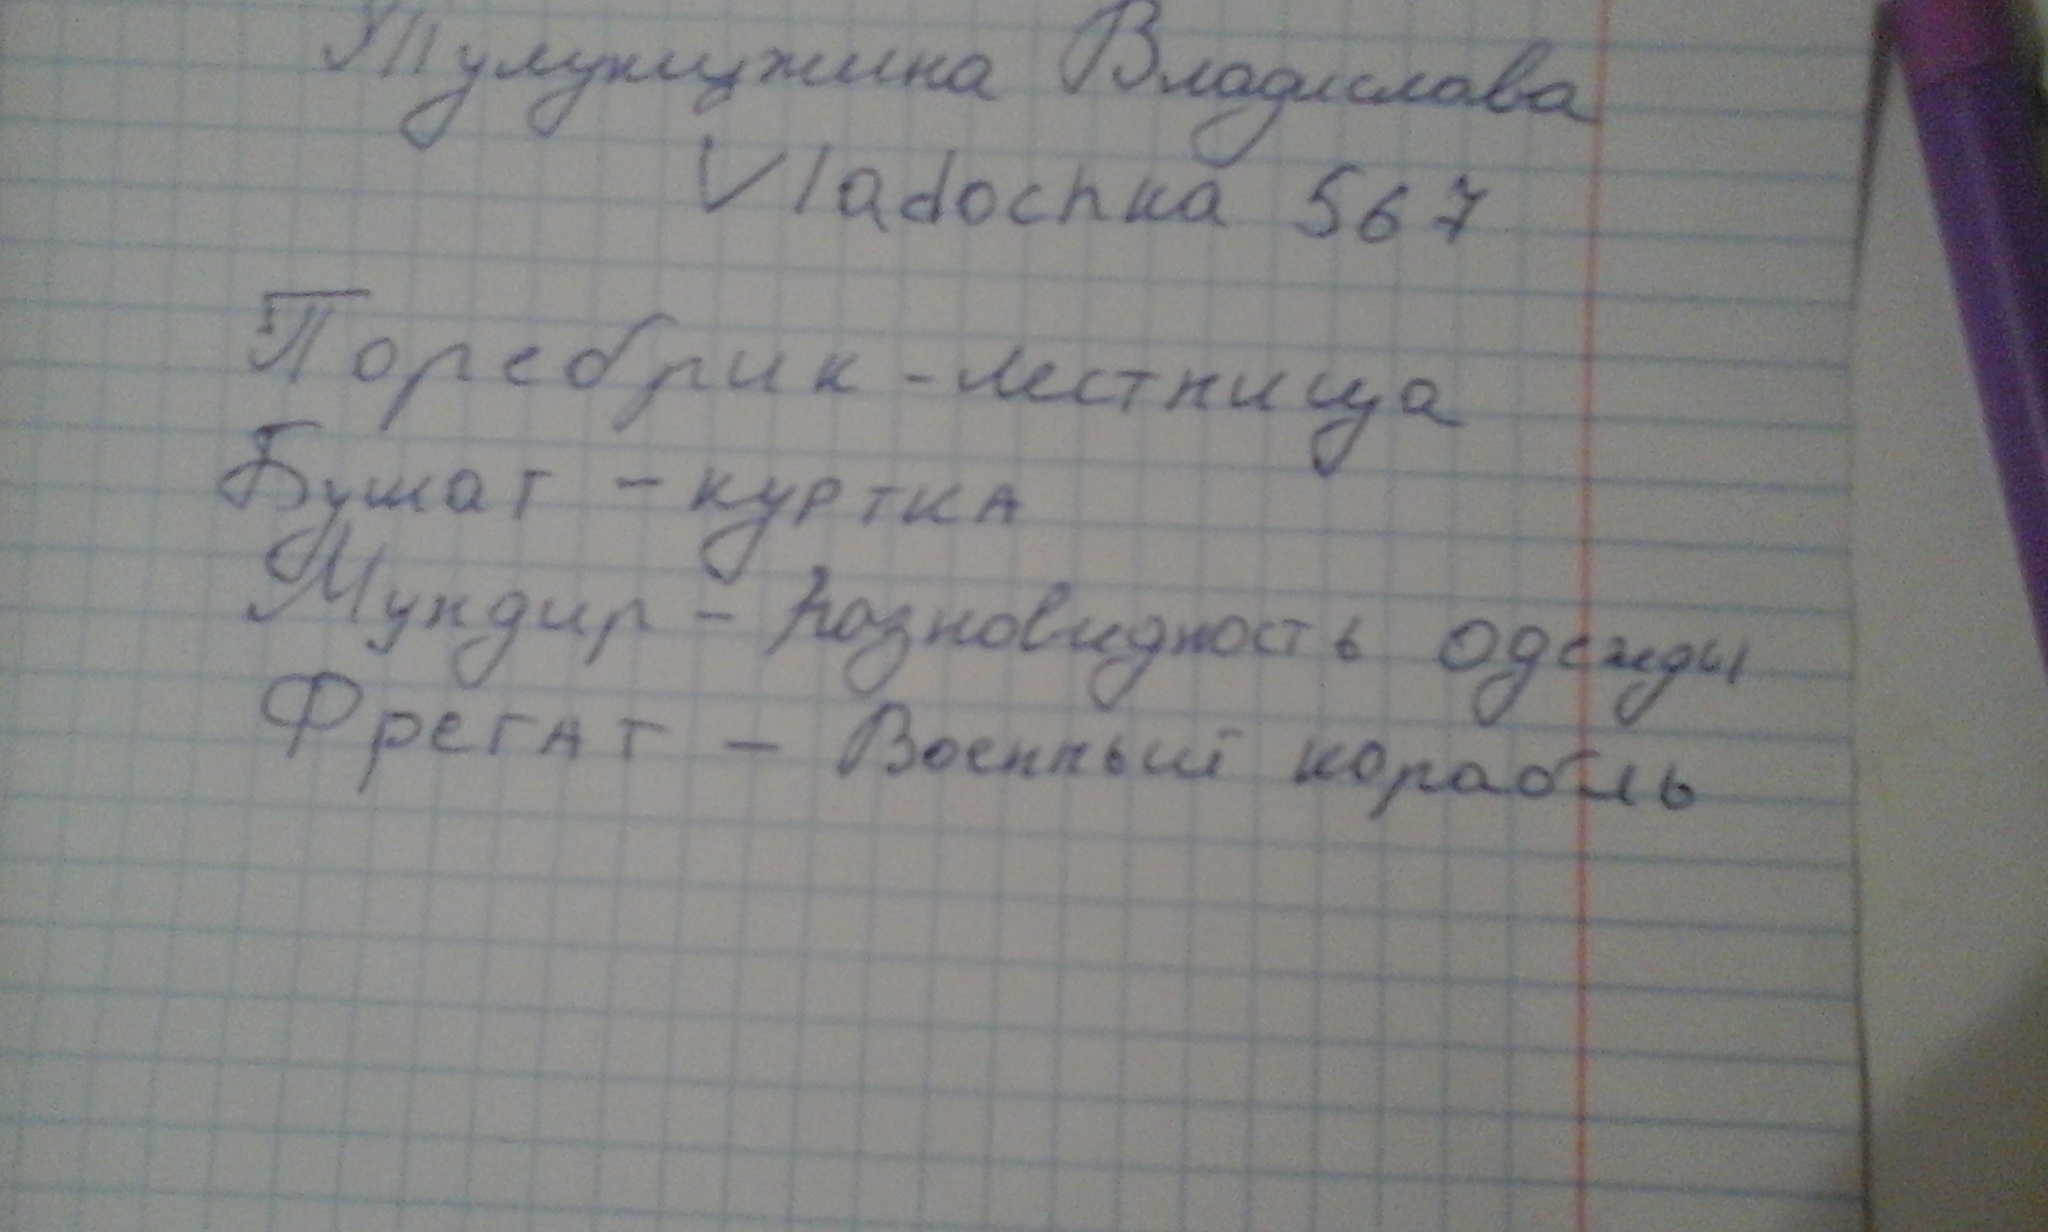 Владислава
Vladochka 567
Поребрик - лестница
Бушат - куртка
Мундир - разновидность одежды
Фрегат - Военный корабль